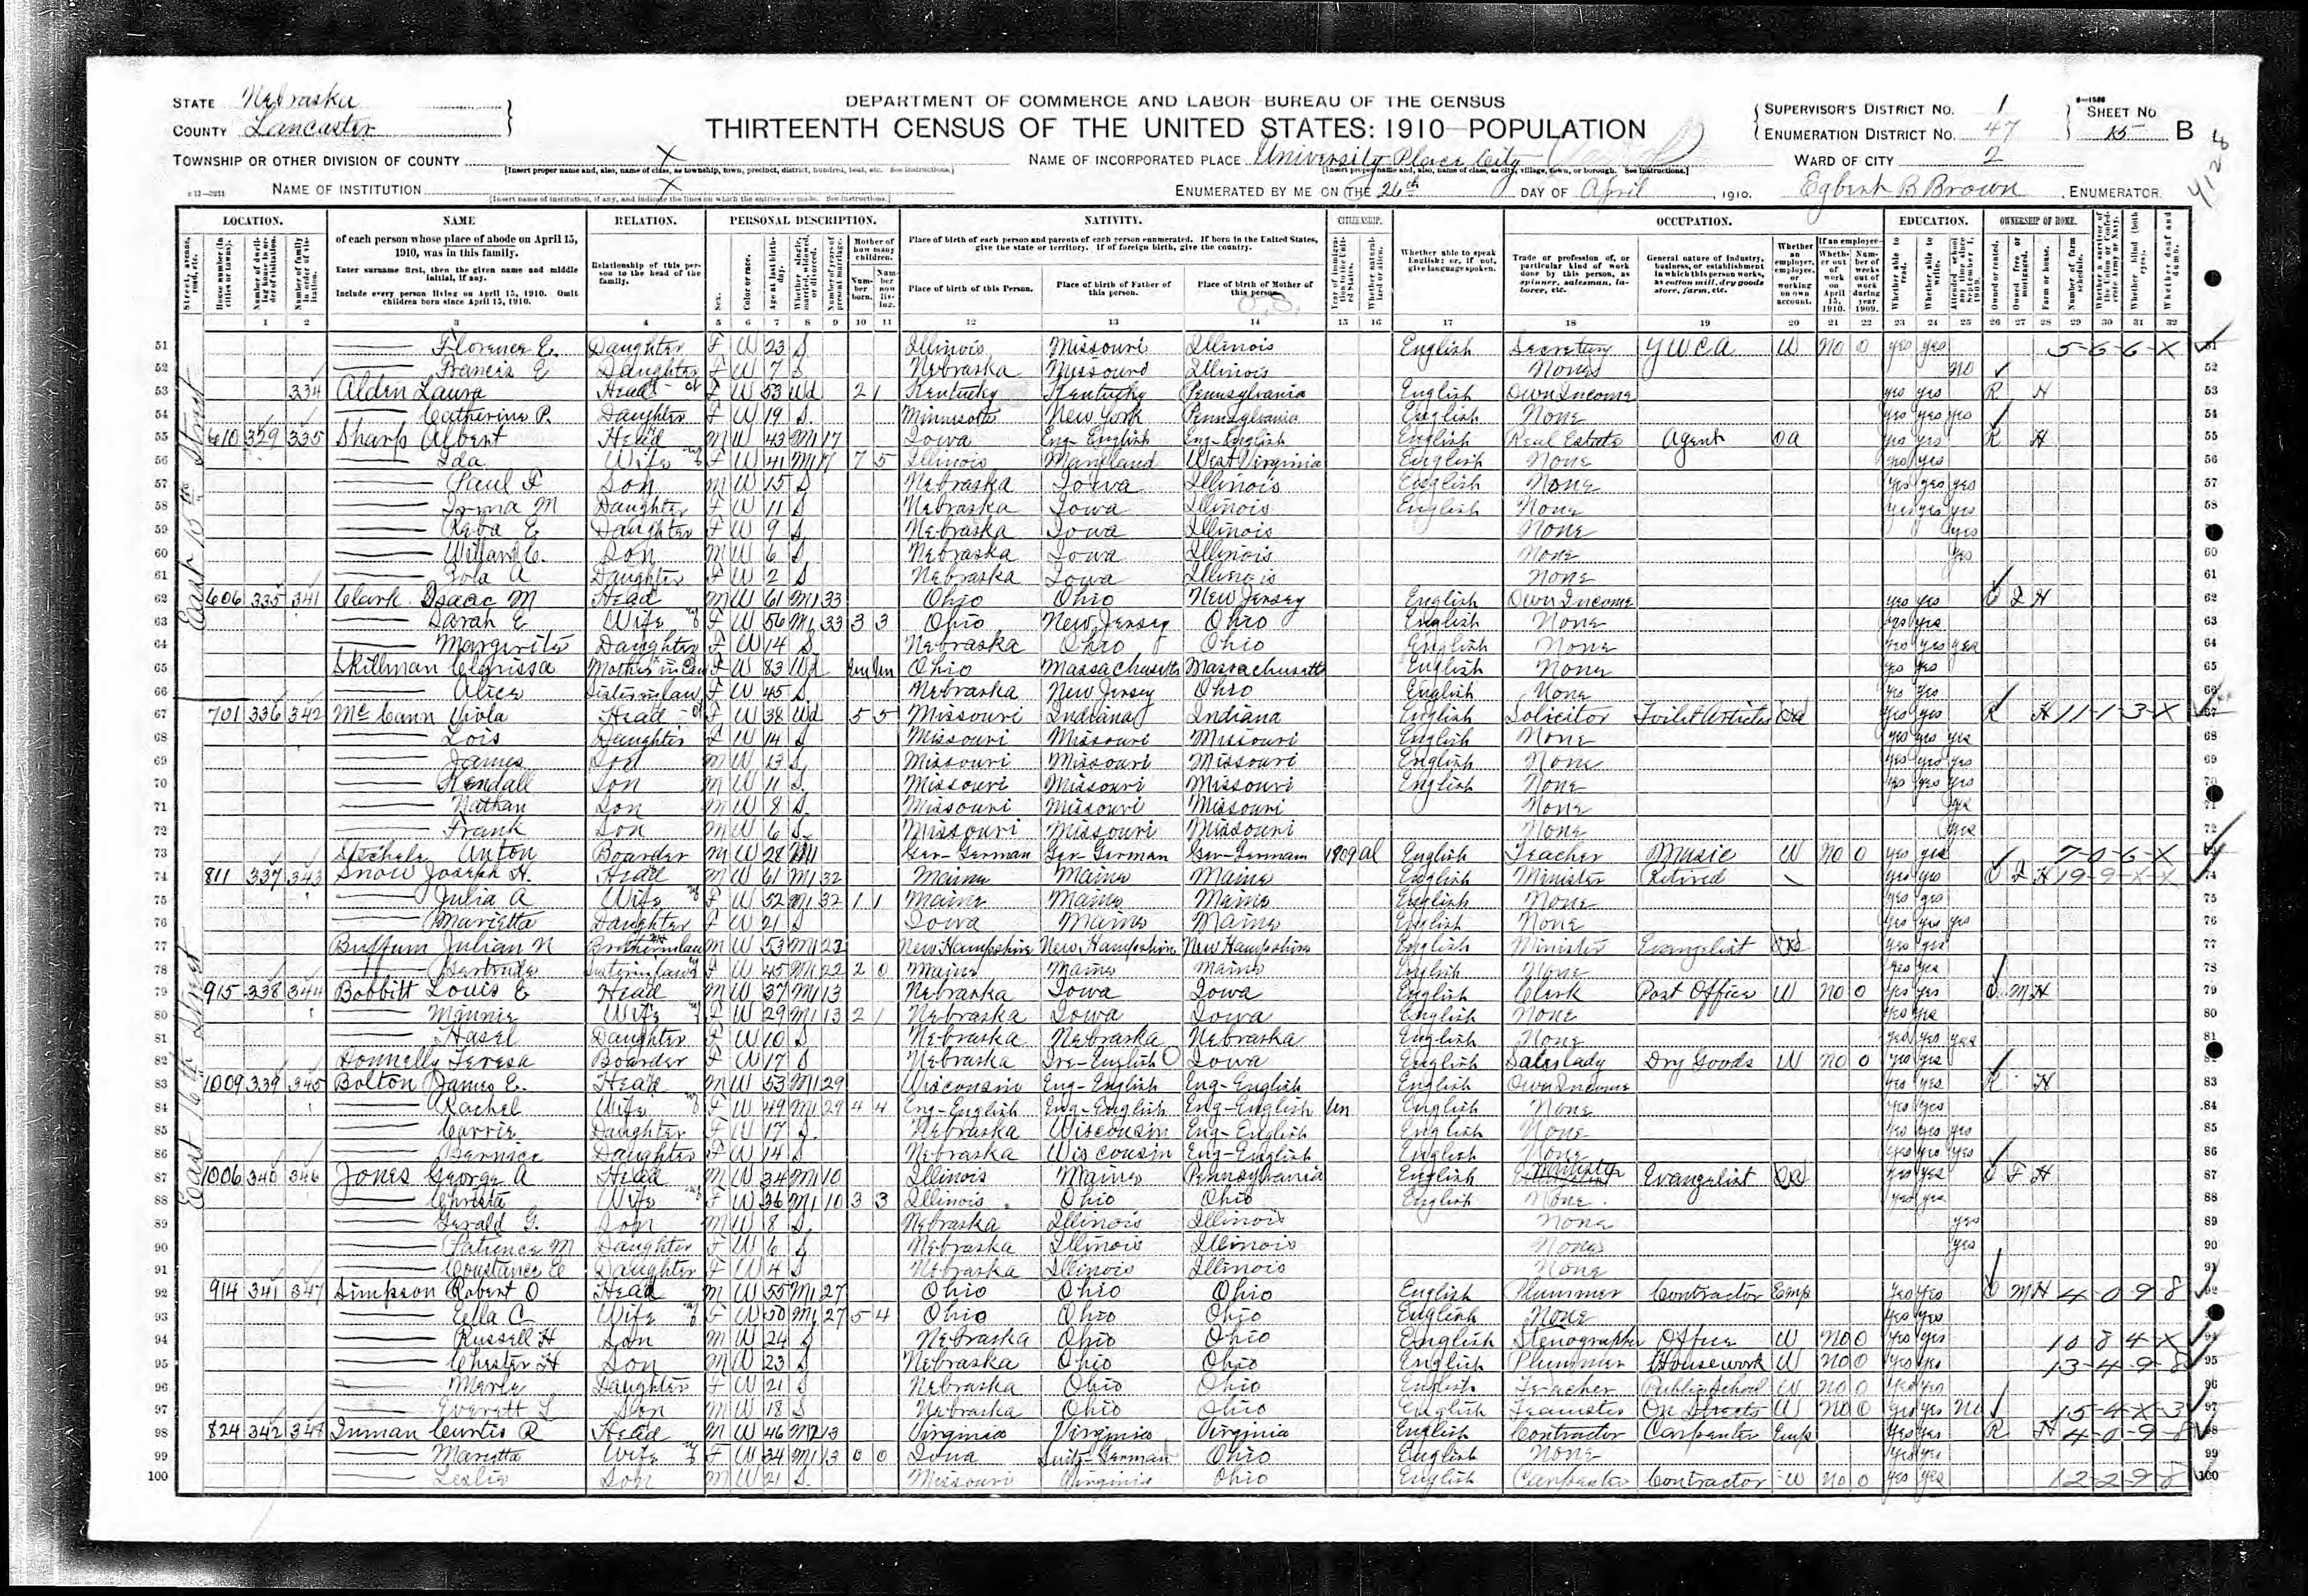 STATE Nebraska
COUNTY Lancaster
DEPARTMENT OF COMMERCE AND LABOR-BUREAU OF THE CENSUS
THIRTEENTH CENSUS OF THE UNITED STATES: 1910-POPULATION
SUPERVISOR'S DISTRICT NO. 1
ENUMERATION DISTRICT NO. 47
SHEET NO 15 B
TOWNSHIP OR OTHER DIVISION OF COUNTY X
NAME OF INCORPORATED PLACE University Place City
WARD OF CITY 2
NAME OF INSTITUTION X
ENUMERATED BY ME ON THE 26th DAY OF April, 1910. Egbert B Brown, ENUMERATOR.
LOCATION. NAME RELATION. PERSONAL DESCRIPTION. NATIVITY. CITIZENSHIP. OCCUPATION. EDUCATION. OWNERSHIP OF HOME.
of each person whose place of abode on April 15, 1910, was in this family.
Enter surname first, then the given name and middle initial, if any.
Include every person living on April 15, 1910. Omit children born since April 15, 1910.
Relationship of this person to the head of the family.
Place of birth of each person and parents of each person enumerated. If born in the United States, give the state or territory. If of foreign birth, give the country.
Place of birth of this Person. Place of birth of Father of this person. Place of birth of Mother of this person.
51 Florence E. Daughter F W 23 S Illinois Missouri Illinois English Secretary YWCA W No 0 yes yes 5-6-6-X
52 Francis E Daughter F W 7 S Nebraska Missouri Illinois None no
53 334 Alden Laura Head F W 53 Wd 2 1 Kentucky Kentucky Pennsylvania English Own Income yes yes R H
54 Catherine P. Daughter F W 19 S Minnesota New York Pennsylvania English None yes yes yes
55 610 329 335 Sharp Albert Head M W 43 M1 17 Iowa Eng-English Eng-English English Real Estate Agent OA yes yes R H
56 Ida Wife F W 41 M1 17 7 5 Illinois Maryland West Virginia English None yes yes
57 Paul I Son M W 15 S Nebraska Iowa Illinois English None yes yes yes
58 Irma M Daughter F W 11 S Nebraska Iowa Illinois English None yes yes yes
59 Reba E Daughter F W 9 S Nebraska Iowa Illinois None yes
60 Willard C. Son M W 6 S Nebraska Iowa Illinois None yes
61 Iola A Daughter F W 2 S Nebraska Iowa Illinois None
62 606 335 341 Clark Isaac M Head M W 61 M1 33 Ohio Ohio New Jersey English Own Income yes yes O F H
63 Sarah E Wife F W 56 M1 33 3 3 Ohio New Jersey Ohio English None yes yes
64 Margarite Daughter F W 14 S Nebraska Ohio Ohio English None yes yes yes
65 Skillman Clarissa Mother in Law F W 83 Wd Un Un Ohio Massachusetts Massachusetts English None yes yes
66 Alice Sister in law F W 45 S Nebraska New Jersey Ohio English None yes yes
67 701 336 342 McCann Viola Head F W 38 Wd 5 5 Missouri Indiana Indiana English Solicitor Toilet Articles OA yes yes R H 11-1-3-X
68 Lois Daughter F W 14 S Missouri Missouri Missouri English None yes yes yes
69 James Son M W 13 S Missouri Missouri Missouri English None yes yes yes
70 Kendall Son M W 11 S. Missouri Missouri Missouri English None yes yes yes
71 Nathan Son M W 8 S. Missouri Missouri Missouri None yes
72 Frank Son M W 6 S. Missouri Missouri Missouri None yes
73 Stechele Anton Boarder M W 28 Ger-German Ger-German Ger-German 1909 Al English Teacher Music W No 0 yes yes 7-0-6-X
74 811 337 343 Snow Joseph H. Head M W 61 M1 32 Maine Maine Maine English Minister Retired yes yes O F H 19-9-X-X
75 Julia A Wife F W 52 M1 32 1 1 Maine Maine Maine English None yes yes
76 Marietta Daughter F W 21 S Iowa Maine Maine English None yes yes yes
77 Buffum Julian N Brotherinlaw M W 53 M1 22 New Hampshire New Hampshire New Hampshire English Minister Evangelist OA yes yes
78 Gertrude Sisterinlaw F W 45 M1 22 2 0 Maine Maine Maine English None yes yes
79 915 338 344 Bobbitt Louis E Head M W 37 M1 13 Nebraska Iowa Iowa English Clerk Post Office W No 0 yes yes O M H
80 Minnie Wife F W 29 M1 13 2 1 Nebraska Iowa Iowa English None yes yes
81 Hasel Daughter F W 10 S Nebraska Nebraska Nebraska English None yes yes yes
82 Donnelly Teresa Boarder F W 17 S Nebraska Ire-English Iowa English Saleslady Dry Goods W No 0 yes yes
83 1009 339 345 Bolton James E. Head M W 53 M1 29 Wisconsin Eng-English Eng-English English Own Income yes yes R H
84 Rachel Wife F W 49 M1 29 4 4 Eng-English Eng-English Eng-English Un English None yes yes
85 Carrie Daughter F W 17 S. Nebraska Wisconsin Eng-English English None yes yes yes
86 Bernice Daughter F W 14 S Nebraska Wisconsin Eng-English English None yes yes yes
87 1006 340 346 Jones George A Head M W 34 M1 10 Illinois Maine Pennsylvania English Minister Evangelist OA yes yes O F H
88 Christa Wife F W 36 M1 10 3 3 Illinois Ohio Ohio English None yes yes
89 Gerald G. Son M W 8 S Nebraska Illinois Illinois None yes
90 Patience M Daughter F W 6 S Nebraska Illinois Illinois None yes
91 Constance E Daughter F W 4 S Nebraska Illinois Illinois None
92 914 341 347 Simpson Robert O Head M W 55 M1 27 Ohio Ohio Ohio English Plummer Contractor Emp yes yes O M H 4-0-9-8
93 Eella C Wife F W 50 M1 27 5 4 Ohio Ohio Ohio English None yes yes
94 Russell H Son M W 24 S Nebraska Ohio Ohio English Stenographer Office W No 0 yes yes 10 8 4 X
95 Chester H Son M W 23 S Nebraska Ohio Ohio English Plummer Housework W No 0 yes yes 13-4-9-8
96 Merle Daughter F W 21 S Nebraska Ohio Ohio English Teacher Public School W No 0 yes yes
97 Everett L Son M W 18 S Nebraska Ohio Ohio English Teamster On Streets W No 0 yes yes No 15-4-X-3
98 824 342 348 Inman Curtis R Head M W 46 M2 13 Virginia Virginia Virginia English Contractor Carpenter Emp yes yes R H 4-0-9-8
99 Marietta Wife F W 34 M1 13 0 0 Iowa Switz-German Ohio English None yes yes
100 Leslie Son M W 21 S. Missouri Virginia Ohio English Carpenter Contractor W No 0 yes yes 12-2-9-8
East 15th Street
East 16th Street